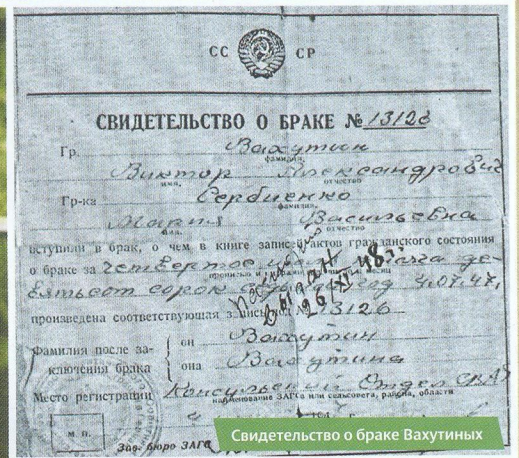 СС СР
СВИДЕТЕЛЬСТВО О БРАКЕ № 13126
Гр. Вахутин
фамилия,
Виктор Александрович
имя, отчество
Гр-ка Сербиенко
фамилия,
Мария Васильевна
имя, отчество
вступили в брак, о чем в книге записей актов гражданского состояния
о браке за четвертое тысяча де-
вятьсот сорок год 4.07.47,
произведена соответствующая запись 13126
выдан 26/ 48
Фамилия после за-
ключения брака
он Вахутин
она Вахутина
Место регистрации Консульский Отдел
наименование ЗАГСа или сельсовета, района, области
м. п.
Зав. бюро ЗАГС
Свидетельство о браке Вахутиных